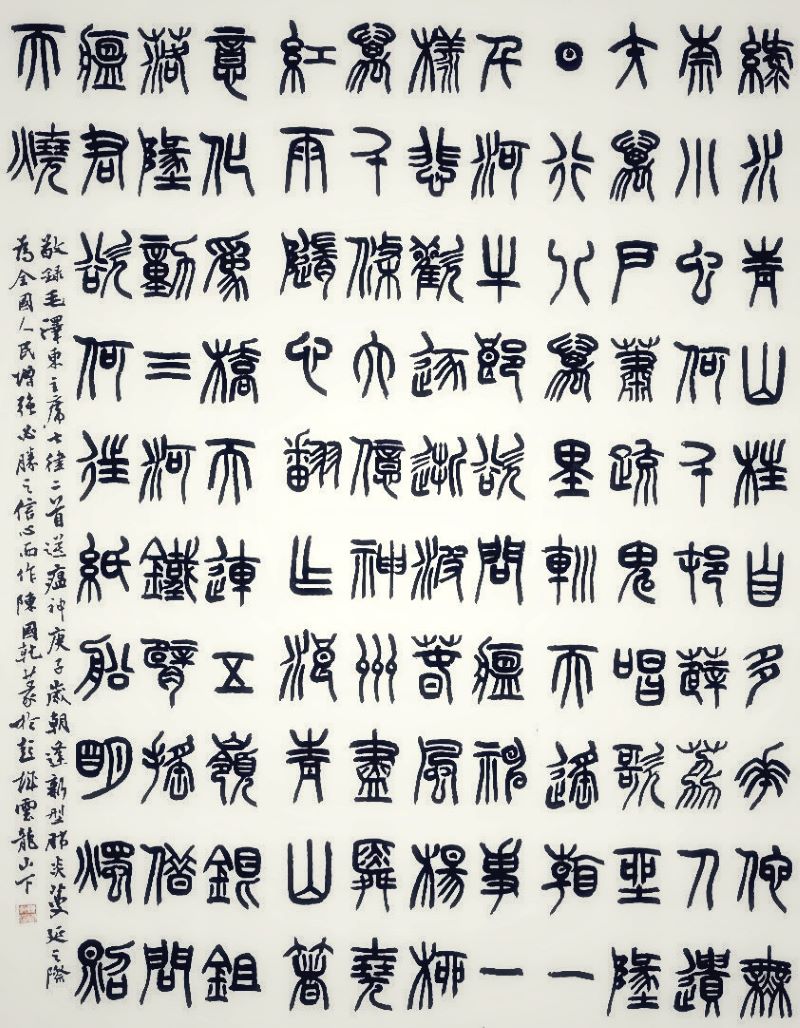 綠水青山枉自多華佗無
奈小虫何千邨薜荔人遺
矢萬戶蕭疏鬼唱歌坐地
日行八萬里巡天遙看一
千河牛郎欲問瘟神事一
樣悲歡逐逝波春風楊柳
萬千條六億神州盡舜堯
紅雨隨心翻作浪青山著
意化為橋天連五嶺銀鉏
落地動三河鐵臂搖借問
瘟君欲何往紙船明燭照
天燒
敬錄毛澤東主席七律二首送瘟神庚子歲朝逢新型肺炎蔓延之際
為全國人民增強必勝之信心而作陳國乾篆於彭城雲龍山下